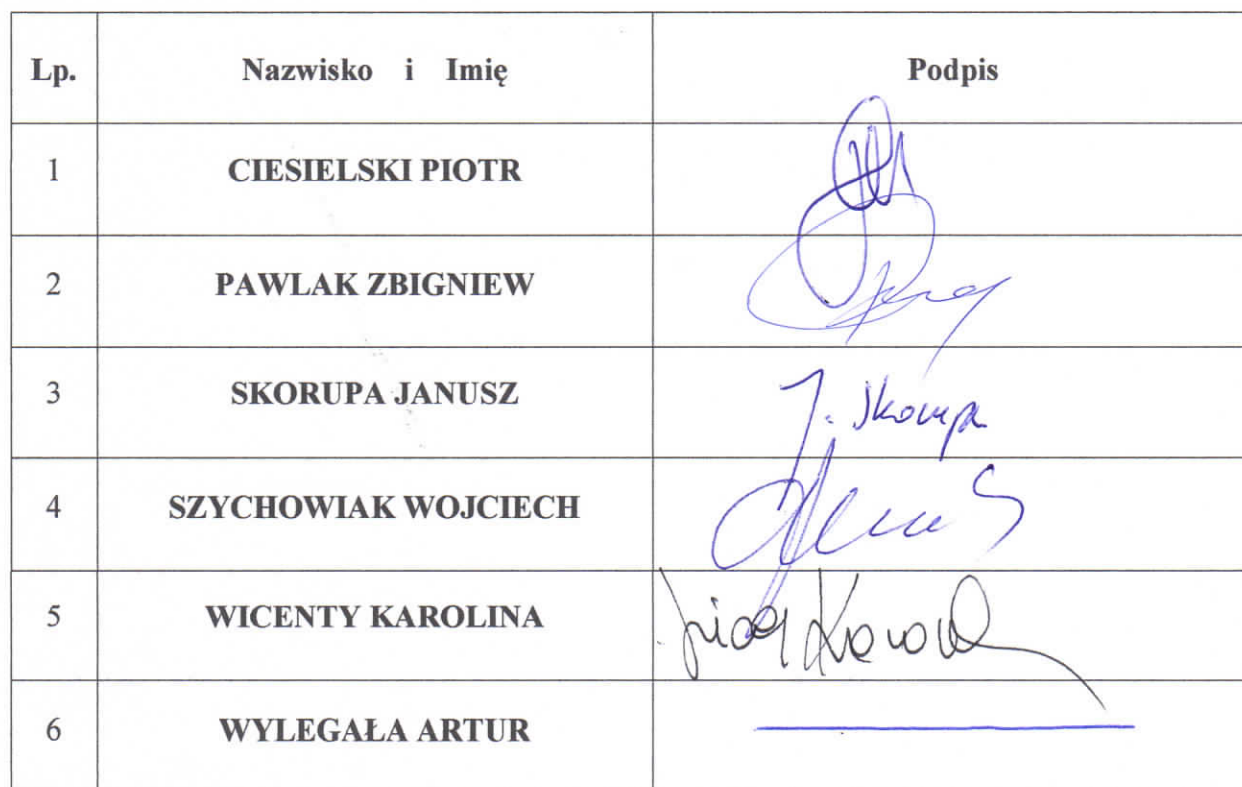 Lp. Nazwisko i Imię Podpis
1 CIESIELSKI PIOTR
2 PAWLAK ZBIGNIEW
3 SKORUPA JANUSZ J. Skorupa
4 SZYCHOWIAK WOJCIECH
5 WICENTY KAROLINA
6 WYLEGAŁA ARTUR